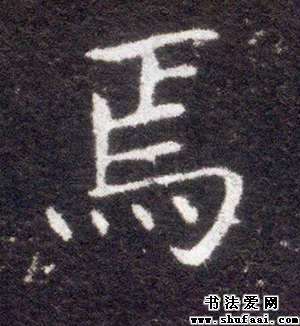 焉
书法爱网
www.shufaai.com